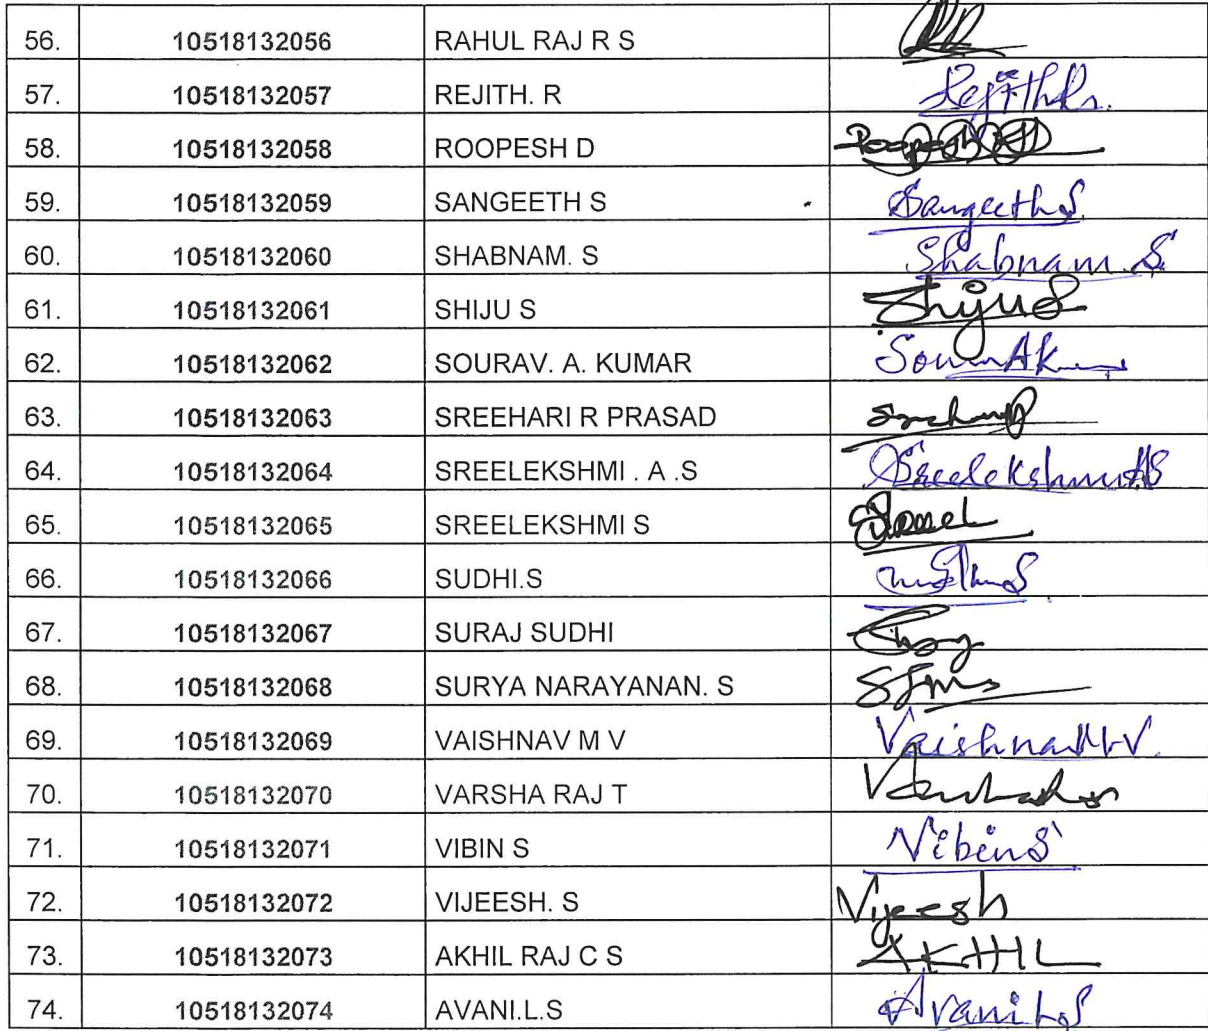 56. 10518132056 RAHUL RAJ R S
57. 10518132057 REJITH. R Rejith R.
58. 10518132058 ROOPESH D Roopesh
59. 10518132059 SANGEETH S Sangeeth S
60. 10518132060 SHABNAM. S Shabnam. S
61. 10518132061 SHIJU S Shiju S
62. 10518132062 SOURAV. A. KUMAR
63. 10518132063 SREEHARI R PRASAD
64. 10518132064 SREELEKSHMI . A .S Sreelekshmi AS
65. 10518132065 SREELEKSHMI S
66. 10518132066 SUDHI.S
67. 10518132067 SURAJ SUDHI
68. 10518132068 SURYA NARAYANAN. S
69. 10518132069 VAISHNAV M V Vaishnav M V
70. 10518132070 VARSHA RAJ T
71. 10518132071 VIBIN S Vibin S
72. 10518132072 VIJEESH. S Vijeesh
73. 10518132073 AKHIL RAJ C S AKHIL
74. 10518132074 AVANI.L.S Avani L S